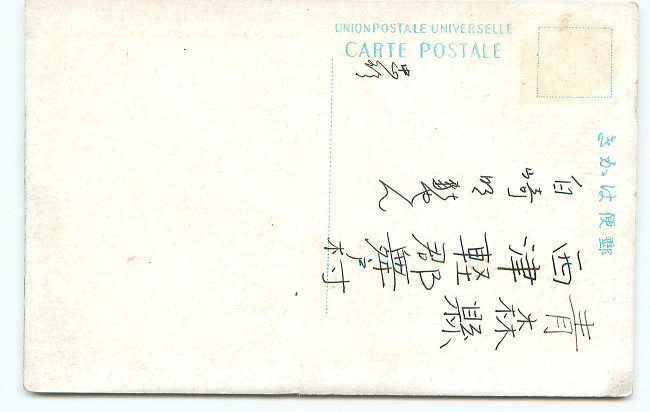 UNION POSTALE UNIVERSELLE
CARTE POSTALE
郵便はかき
青森縣
西津軽郡舞戸村
白崎